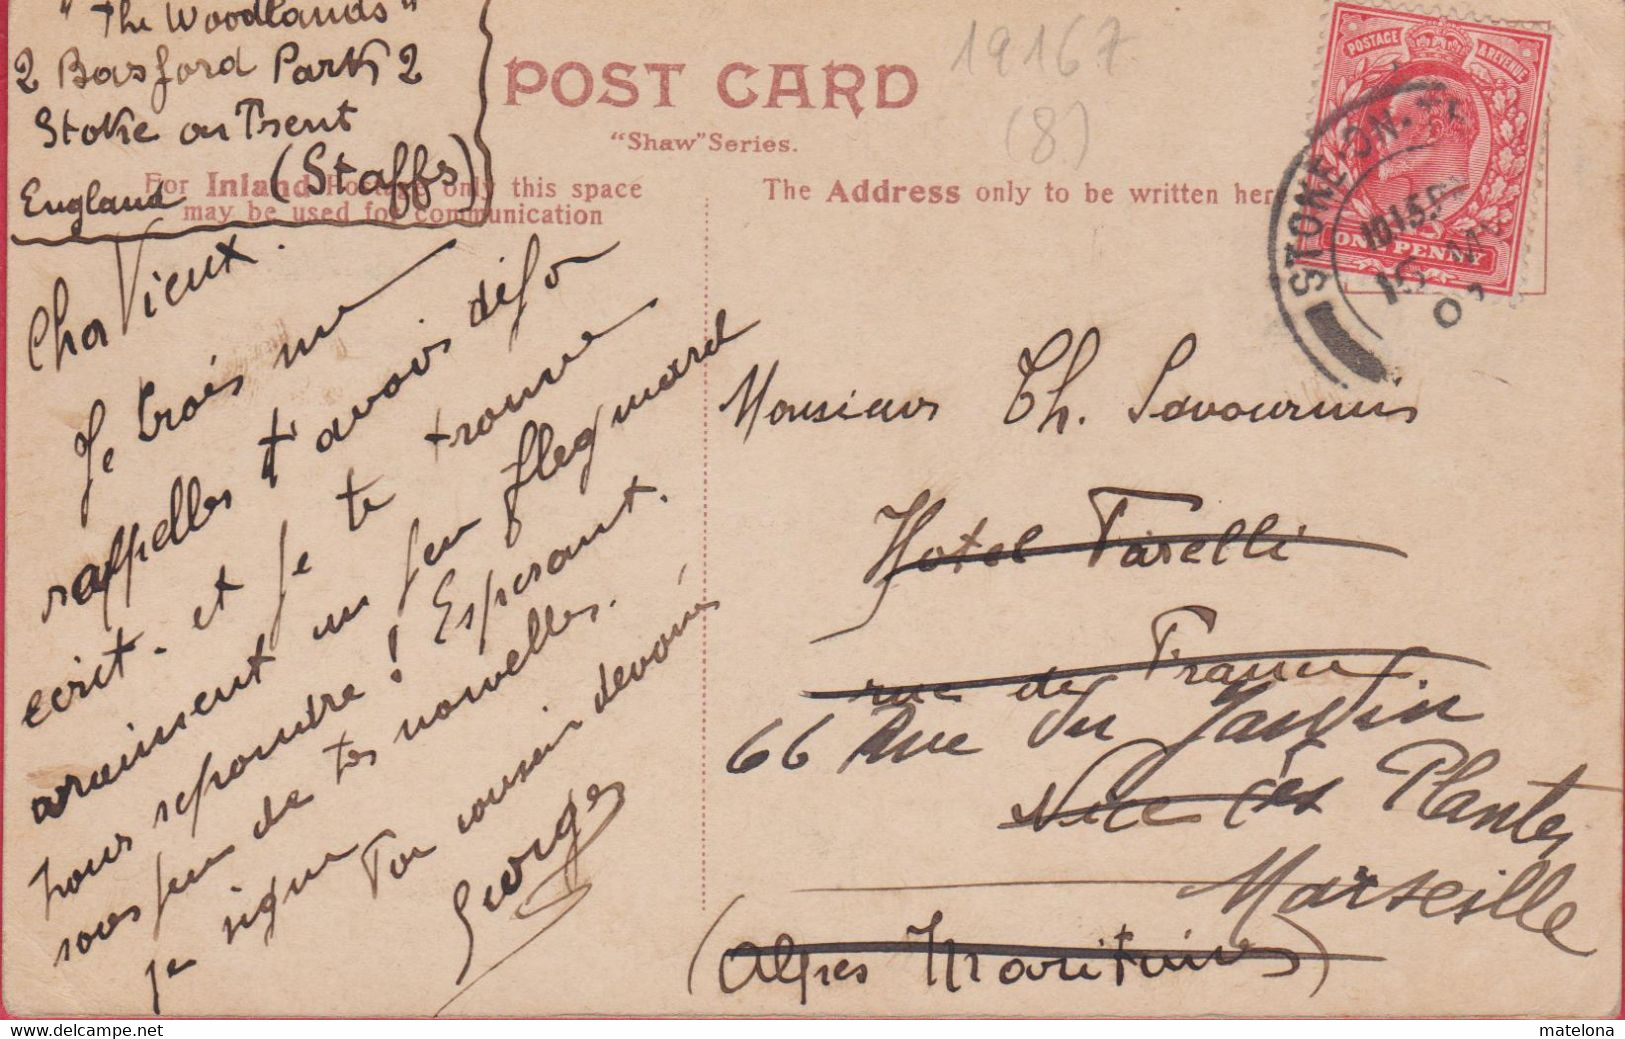 "The Woodlands"
2 Basford Park 2
Stoke on Trent
(Staffs)
England
POST CARD
"Shaw" Series.
19167
(8)
For Inland Postage only this space
may be used for communication
The Address only to be written here
POSTAGE & REVENUE
ONE PENNY
STOKE-ON-T
10.15 PM
15 MY
07
Cher Vieux.
Je crois me
rappeller t'avoir déjà
écrit. et je te trouve
vraiment un peu flegmard
pour repondre! Esperant.
sous peu de tes nouvelles.
je signe
Ton cousin devoué
Georges
Monsieur Th. Savournin
Hotel Tarelli
rue de France
66 Rue du Jardin
Nice des Plantes
Marseille
(Alpes Maritimes)
matelona